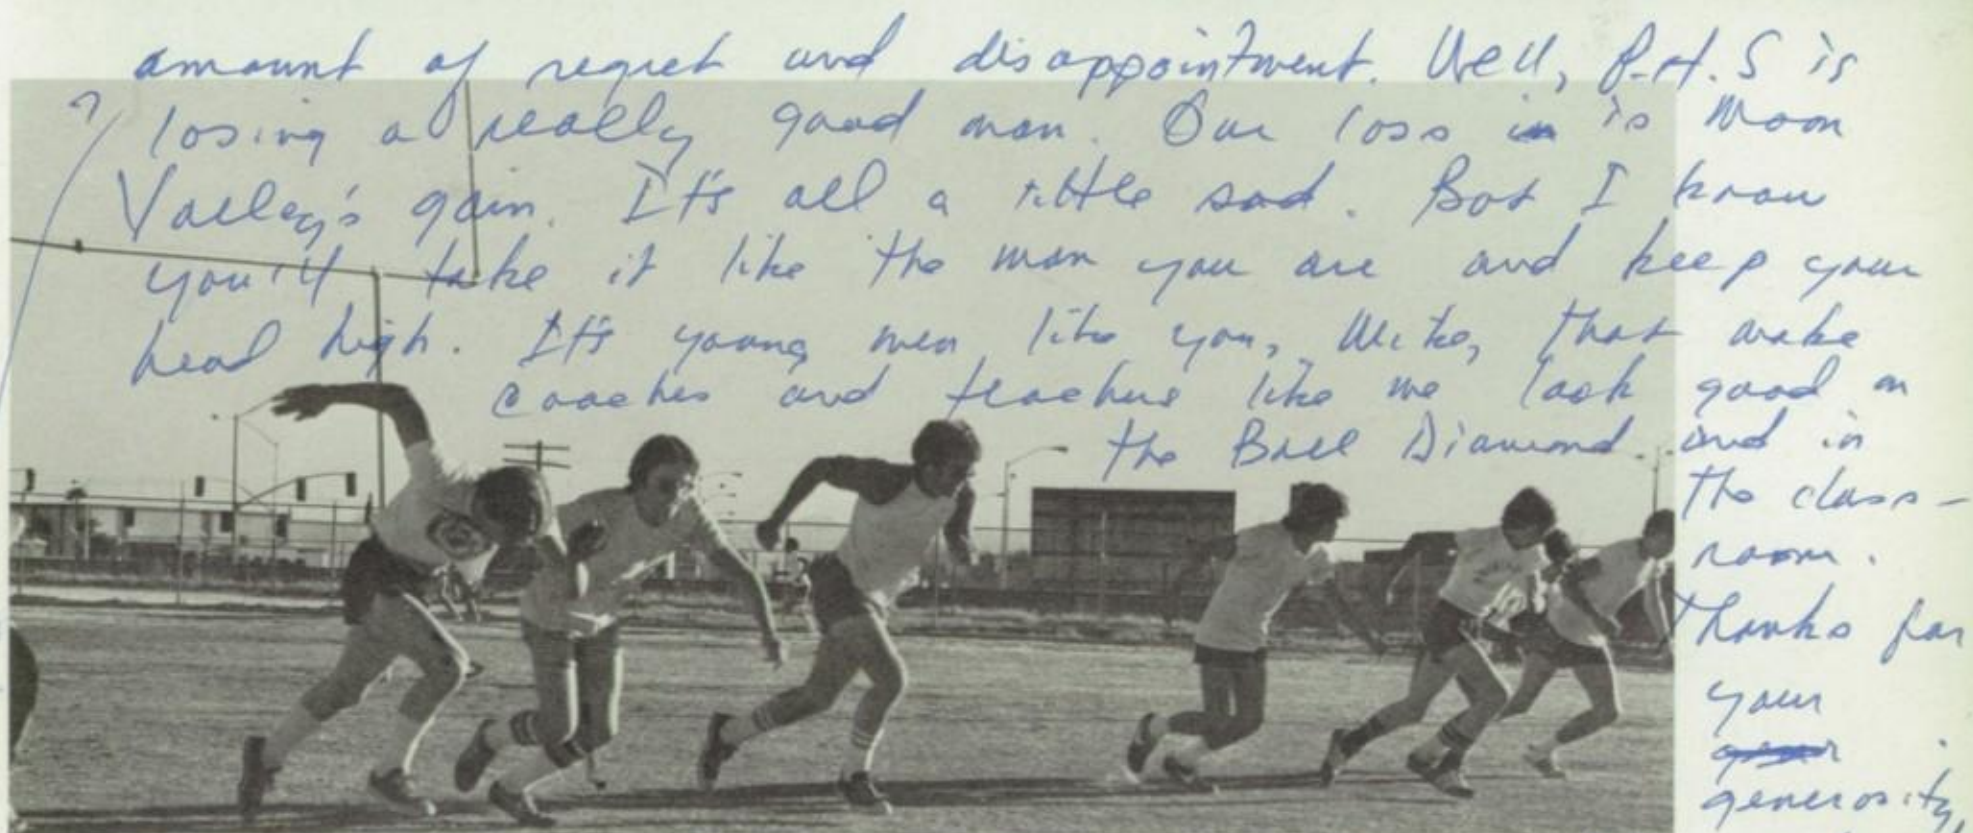 amount of regret and disappointment. Well, P.H.S is
losing a really good man. Our loss in is Moon
Valley's gain. It's all a little sad. But I know
you'll take it like the man you are and keep your
head high. It's young men like you, Mike, that make
coaches and teachers like me look good on
the Ball Diamond and in
the class-
room.
Thanks for
your
generosity,